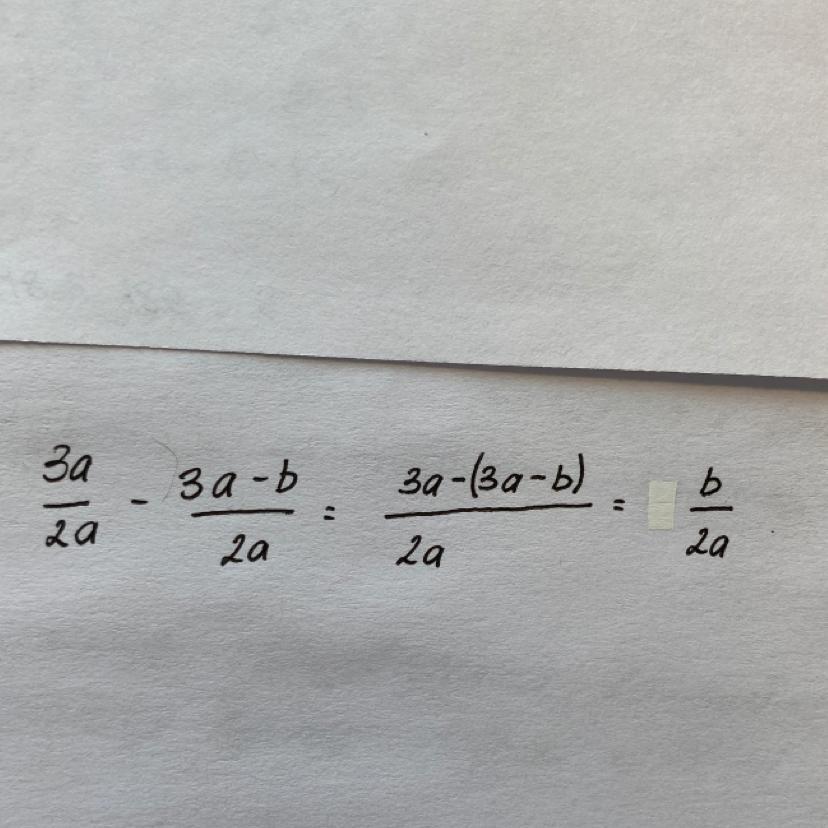 3a/2a - (3a-b)/2a = (3a-(3a-b))/2a = b/2a